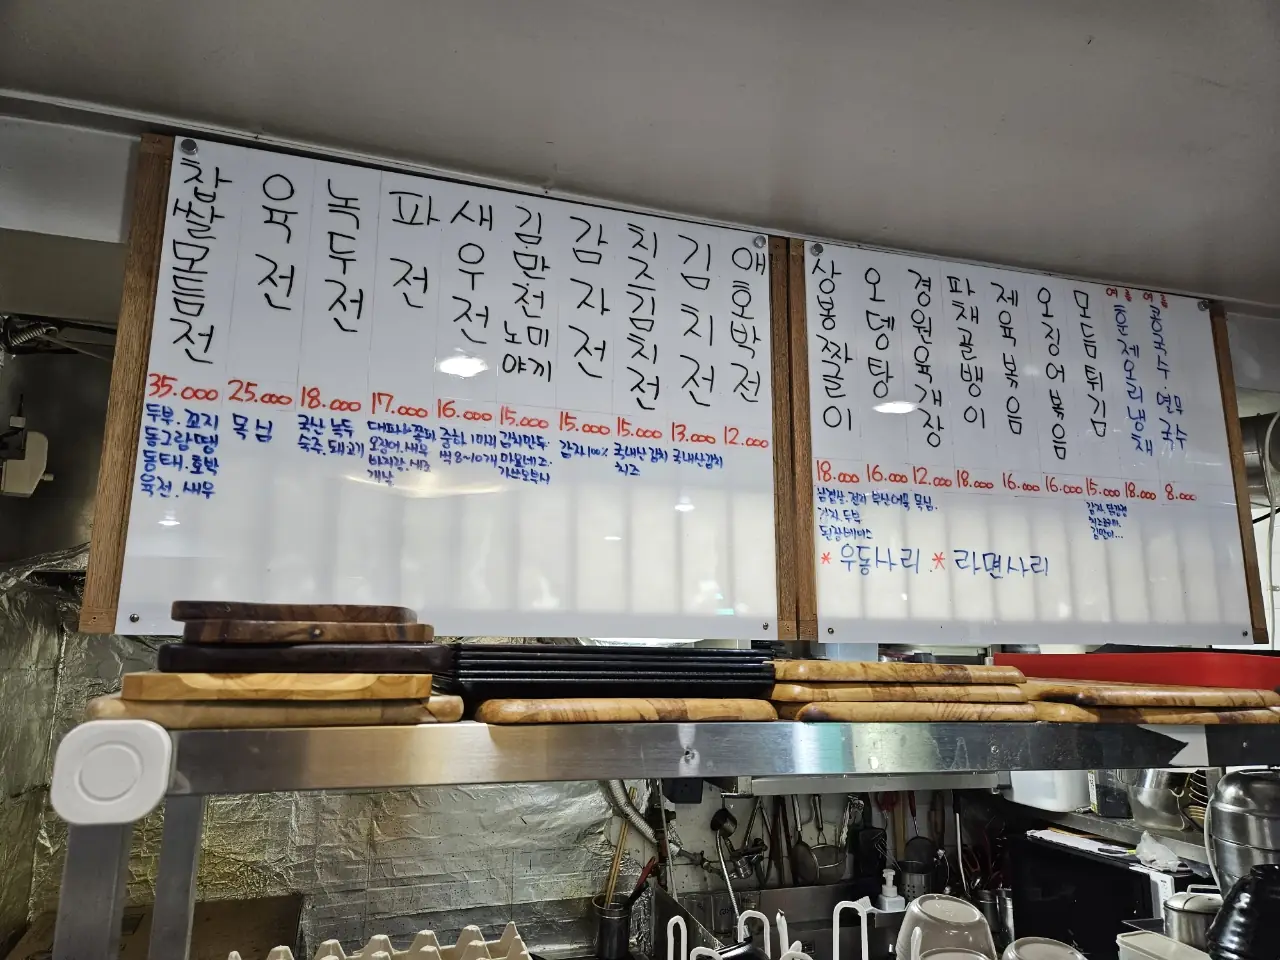 찹쌀모듬전
35.000
두부.꼬지
동그랑땡
동태.호박
육전.새우
육전
25.000
목심
녹두전
18.000
국산 녹두
숙주.돼지고기
파전
17.000
오징어.새우
새우전
16.000
김만전노미야끼
15.000
김치만두.
마요네즈.
가쓰오부시
감자전
15.000
감자100%
치즈김치전
15.000
국내산 김치
치즈
김치전
13.000
국내산김치
애호박전
12.000
상봉짜글이
18.000
삼겹살.
감자.두부
된장베이스
오뎅탕
16.000
부산어묵
경원육개장
12.000
목심.
파채골뱅이
18.000
제육볶음
16.000
오징어볶음
16.000
모듬튀김
15.000
김말이...
여름
훈제오리냉채
18.000
여름
콩국수.열무국수
8.000
*우동사리.*라면사리